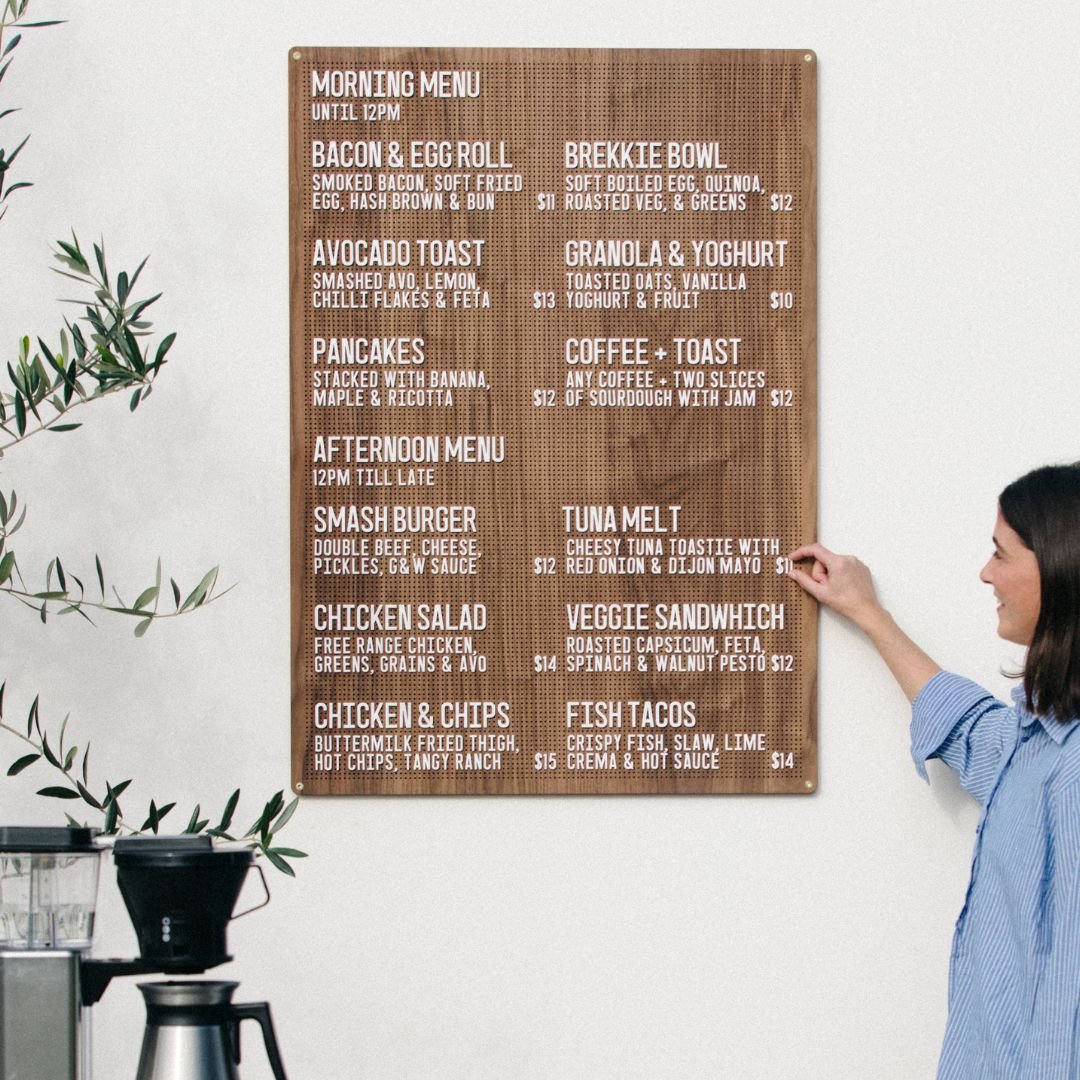 MORNING MENU
UNTIL 12PM
BACON & EGG ROLL
SMOKED BACON, SOFT FRIED
EGG, HASH BROWN & BUN $11
BREKKIE BOWL
SOFT BOILED EGG, QUINOA,
ROASTED VEG, & GREENS $12
AVOCADO TOAST
SMASHED AVO, LEMON,
CHILLI FLAKES & FETA $13
GRANOLA & YOGHURT
TOASTED OATS, VANILLA
YOGHURT & FRUIT $10
PANCAKES
STACKED WITH BANANA,
MAPLE & RICOTTA $12
COFFEE + TOAST
ANY COFFEE + TWO SLICES
OF SOURDOUGH WITH JAM $12
AFTERNOON MENU
12PM TILL LATE
SMASH BURGER
DOUBLE BEEF, CHEESE,
PICKLES, G&W SAUCE $12
TUNA MELT
CHEESY TUNA TOASTIE WITH
RED ONION & DIJON MAYO
CHICKEN SALAD
FREE RANGE CHICKEN,
GREENS, GRAINS & AVO $14
VEGGIE SANDWHICH
ROASTED CAPSICUM, FETA,
SPINACH & WALNUT PESTO $12
CHICKEN & CHIPS
BUTTERMILK FRIED THIGH,
HOT CHIPS, TANGY RANCH $15
FISH TACOS
CRISPY FISH, SLAW, LIME
CREMA & HOT SAUCE $14